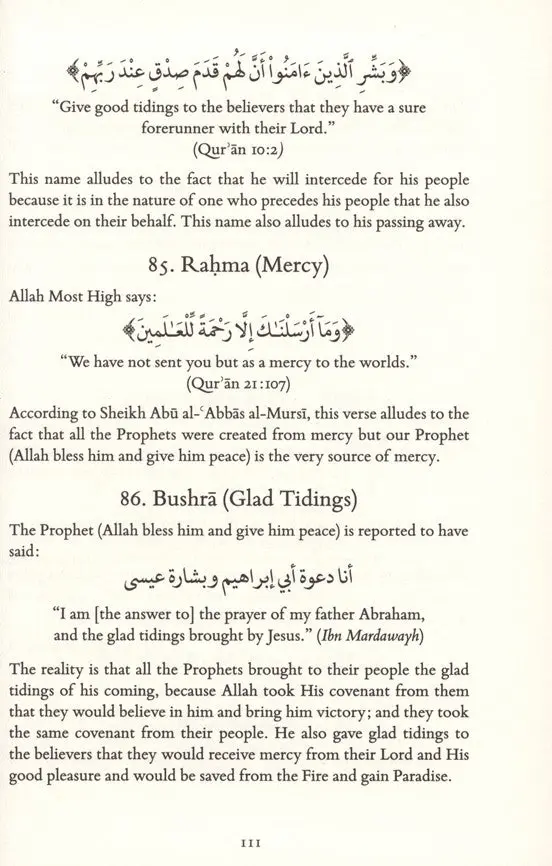 ﴿وَبَشِّرِ ٱلَّذِينَ ءَامَنُوٓا۟ أَنَّ لَهُمْ قَدَمَ صِدْقٍ عِندَ رَبِّهِمْ﴾
“Give good tidings to the believers that they have a sure
forerunner with their Lord.”
(Qurʾān 10:2)
This name alludes to the fact that he will intercede for his people
because it is in the nature of one who precedes his people that he also
intercede on their behalf. This name also alludes to his passing away.
85. Raḥma (Mercy)
Allah Most High says:
﴿وَمَآ أَرْسَلْنَـٰكَ إِلَّا رَحْمَةً لِّلْعَـٰلَمِينَ﴾
“We have not sent you but as a mercy to the worlds.”
(Qurʾān 21:107)
According to Sheikh Abū al-ʿAbbās al-Mursī, this verse alludes to the
fact that all the Prophets were created from mercy but our Prophet
(Allah bless him and give him peace) is the very source of mercy.
86. Bushrā (Glad Tidings)
The Prophet (Allah bless him and give him peace) is reported to have
said:
أنا دعوة أبي إبراهيم وبشارة عيسى
“I am [the answer to] the prayer of my father Abraham,
and the glad tidings brought by Jesus.” (Ibn Mardawayh)
The reality is that all the Prophets brought to their people the glad
tidings of his coming, because Allah took His covenant from them
that they would believe in him and bring him victory; and they took
the same covenant from their people. He also gave glad tidings to
the believers that they would receive mercy from their Lord and His
good pleasure and would be saved from the Fire and gain Paradise.
111